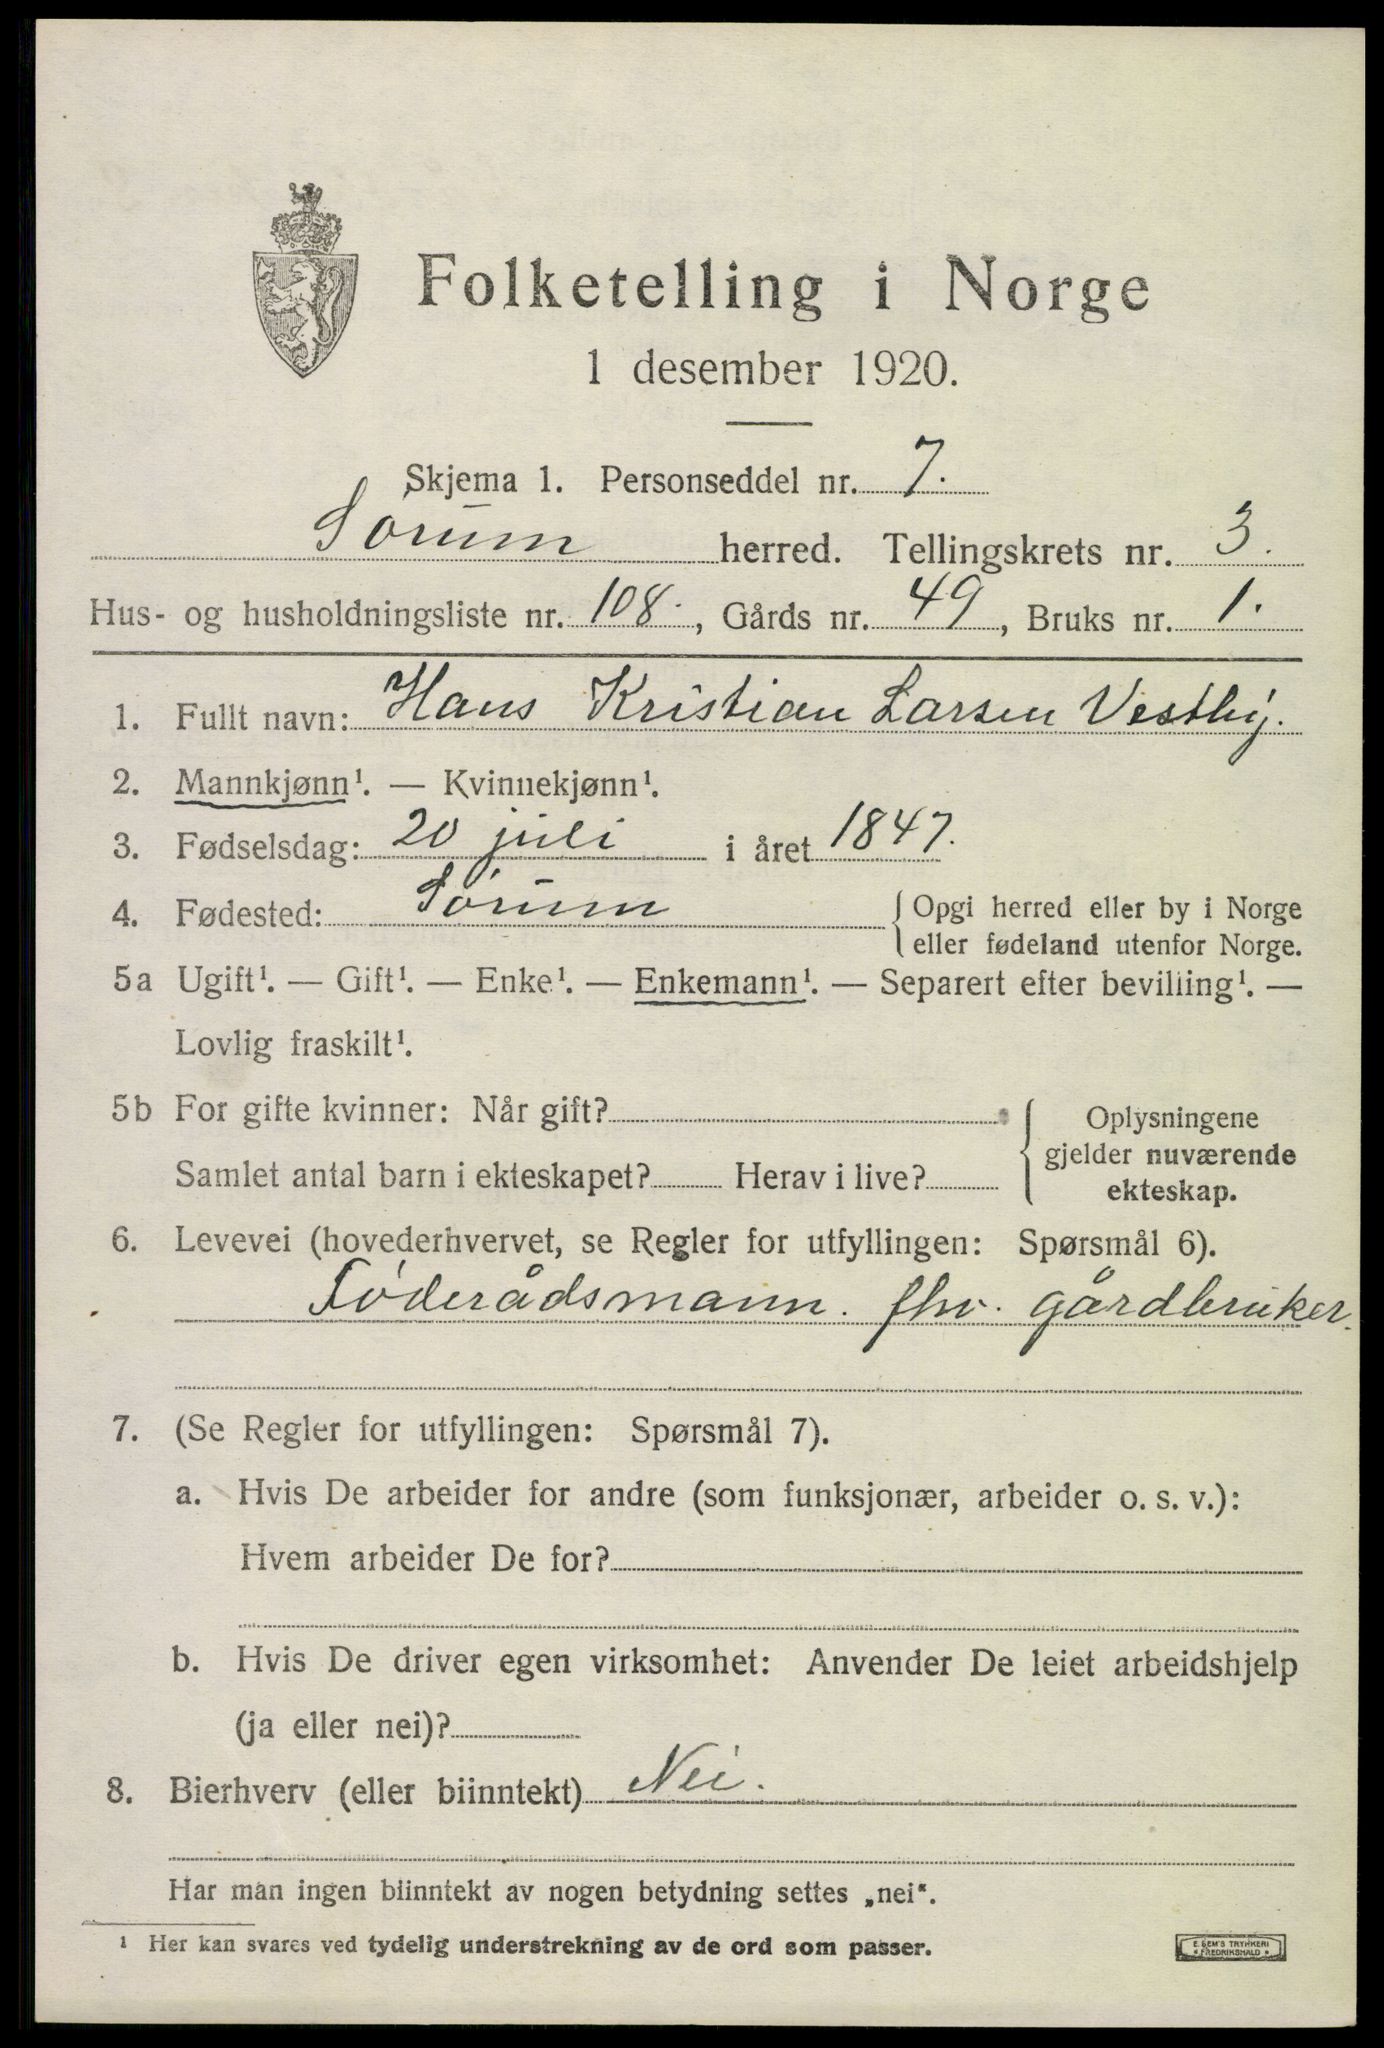 Folketelling i Norge
1 desember 1920.
Skjema 1. Personseddel nr. 7.
Sørum herred. Tellingskrets nr. 3.
Hus- og husholdningsliste nr. 108., Gårds nr. 49, Bruks nr. 1.
1. Fullt navn: Hans Kristian Larsen Vestby.
2. Mannkjønn¹. — Kvinnekjønn¹.
3. Fødselsdag: 20 juli i året 1847.
4. Fødested: Sørum { Opgi herred eller by i Norge
eller fødeland utenfor Norge.
5a Ugift¹. — Gift¹. — Enke¹. — Enkemann¹. — Separert efter bevilling¹. —
Lovlig fraskilt¹.
5b For gifte kvinner: Når gift? { Oplysningene
gjelder nuværende
Samlet antal barn i ekteskapet? Herav i live?
ekteskap.
6. Levevei (hovederhvervet, se Regler for utfyllingen: Spørsmål 6).
Föderådsmann. fhv. gårdbruker.
7. (Se Regler for utfyllingen: Spørsmål 7).
a. Hvis De arbeider for andre (som funksjonær, arbeider o. s. v.):
Hvem arbeider De for?
b. Hvis De driver egen virksomhet: Anvender De leiet arbeidshjelp
(ja eller nei)?
8. Bierhverv (eller biinntekt) Nei.
Har man ingen biinntekt av nogen betydning settes „nei".
¹ Her kan svares ved tydelig understrekning av de ord som passer.
E. SEM'S TRYKKERI
* FREDRIKSHALD *